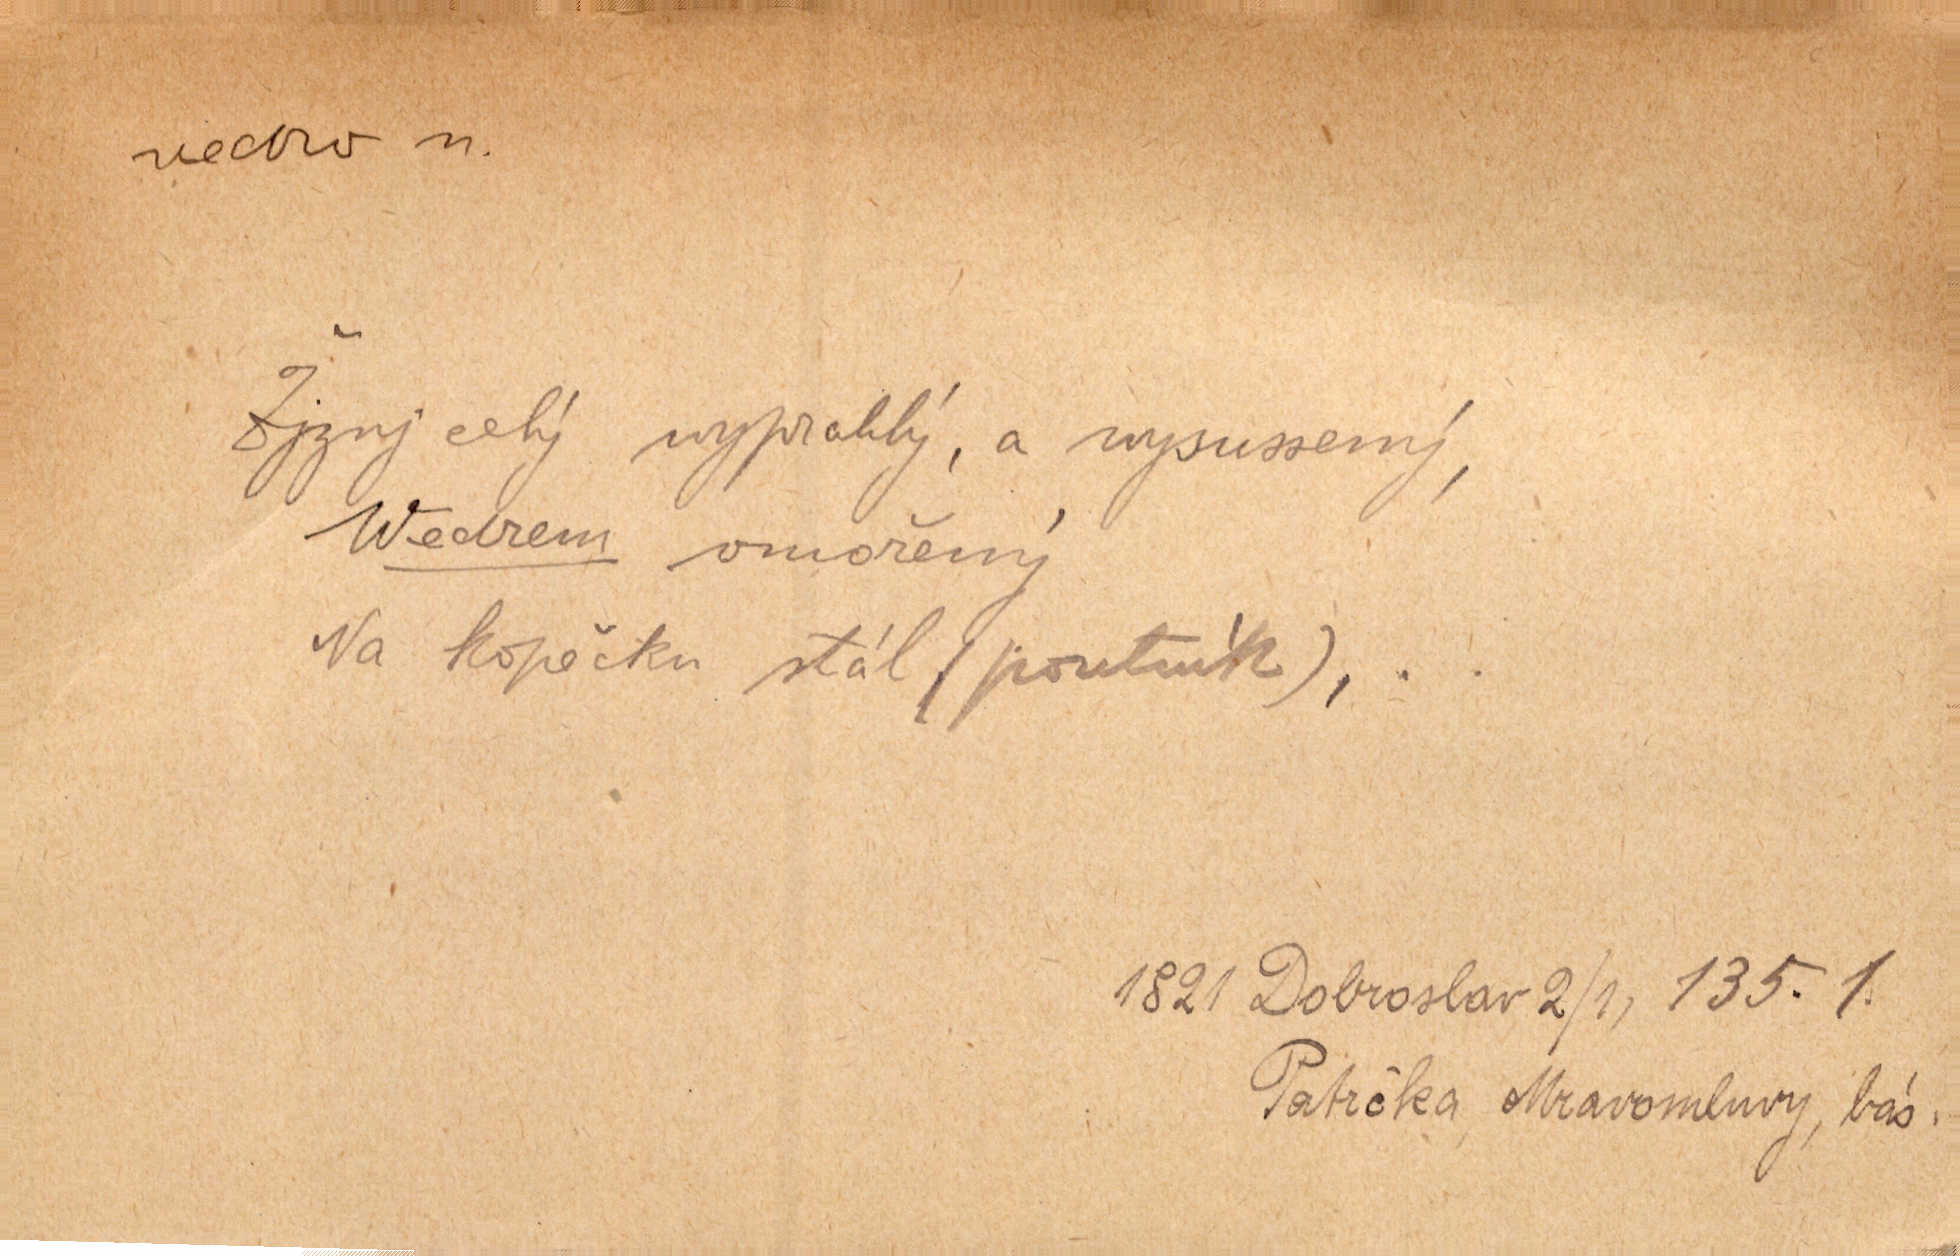 vedro n.
Žjznj celý wyprahlý, a wysussený,
Wedrem omořený
Na kopečku stál (poutník), . .
1821 Dobroslav 2/1, 135. 1.
Patrčka, Mravomluvy, bás.